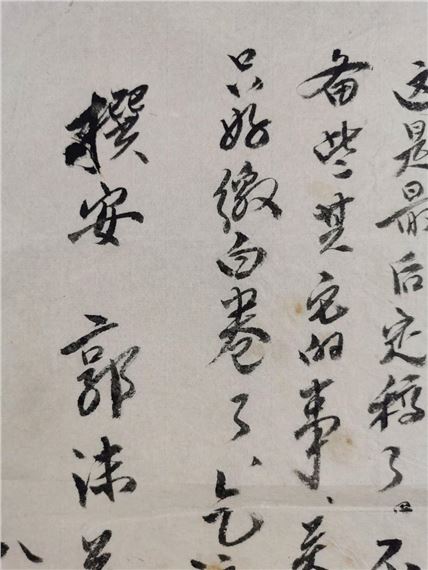 这是最后定稿了。不
备些其它的事，
只好缴白卷了，乞
撰安 郭沫若
八